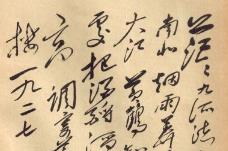 茫茫九派流
南北烟雨莽
大江黄鹤知
处把酒酹滔
高调寄
楼一九二七